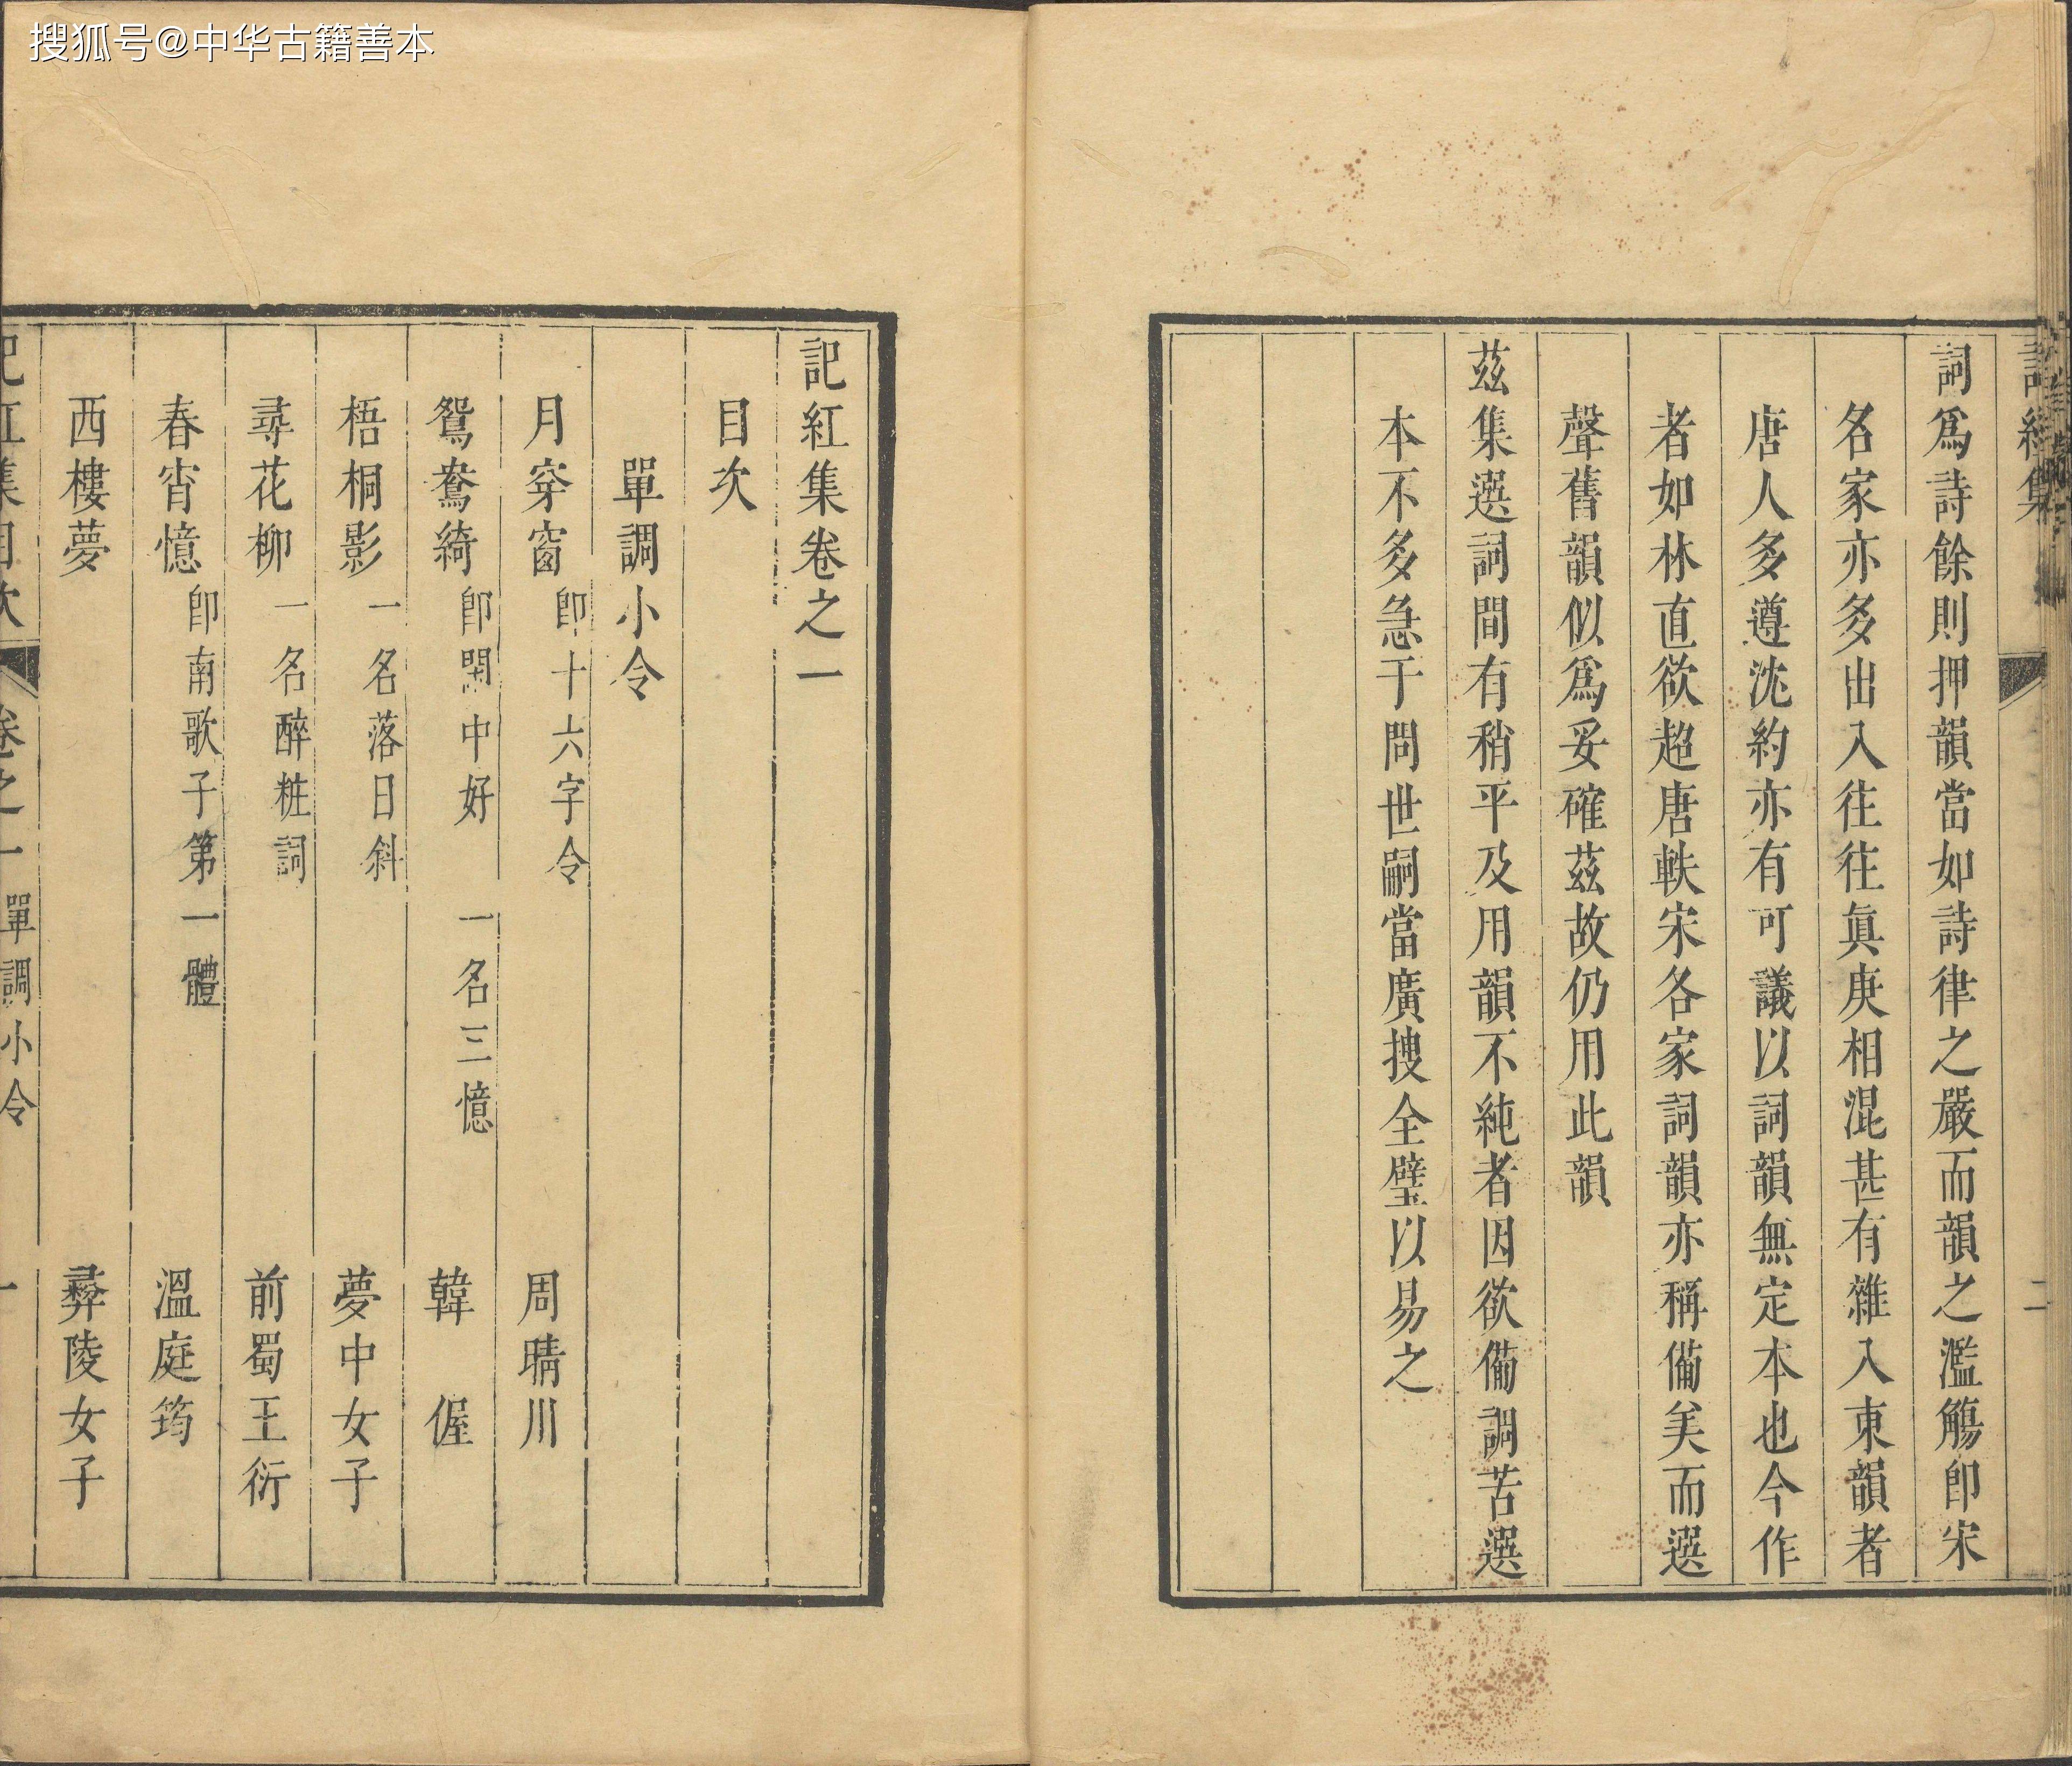 搜狐号@中华古籍善本
詞爲詩餘則押韻當如詩律之嚴而韻之濫觴卽宋
名家亦多出入往往眞庚相混甚有雜入東韻者
唐人多遵沈約亦有可議以詞韻無定本也今作
者如林直欲超唐軼宋各家詞韻亦稱備美而選
聲舊韻似爲妥確茲故仍用此韻
茲集選詞間有稍平及用韻不純者因欲備調苦選
本不多急于問世嗣當廣搜全璧以易之
二
記紅集卷之一
目次
單調小令
月穿窗 卽十六字令 周晴川
鴛鴦綺 卽閑中好 一名三憶 韓偓
梧桐影 一名落日斜 夢中女子
尋花柳 一名醉粧詞 前蜀王衍
春宵憶 卽南歌子第一體 溫庭筠
西樓夢 彞陵女子
記紅集目次 卷之一 單調小令 一